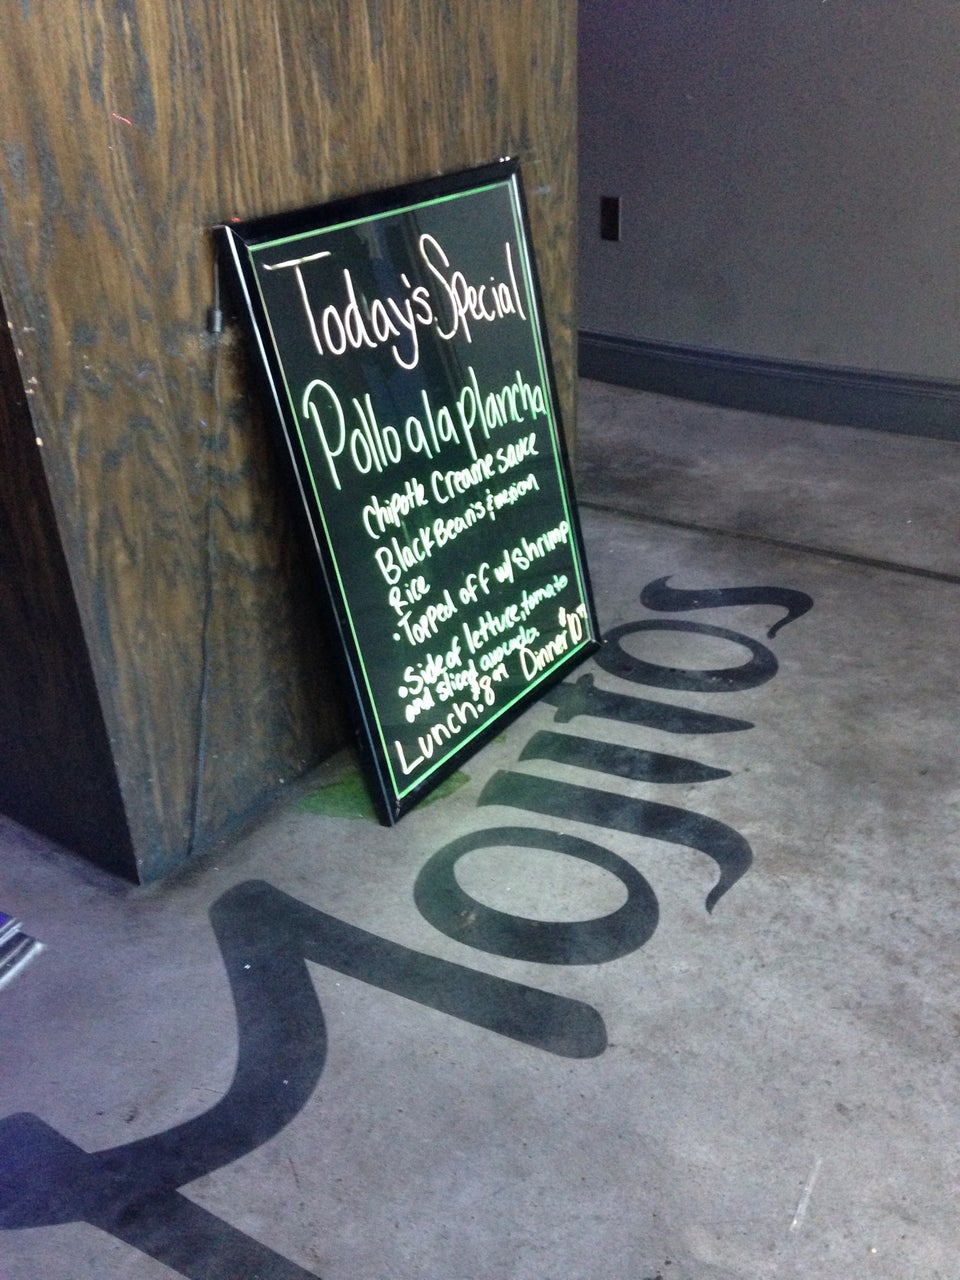 Today's Special
Pollo a la plancha
Chipotle Creame sauce
Black Bean's & mexican
Rice
• Topped off w/ Shrimp
• Side of lettuce, tomato
and sliced avocado
Lunch: $8.99 Dinner $10.99
Mojitos